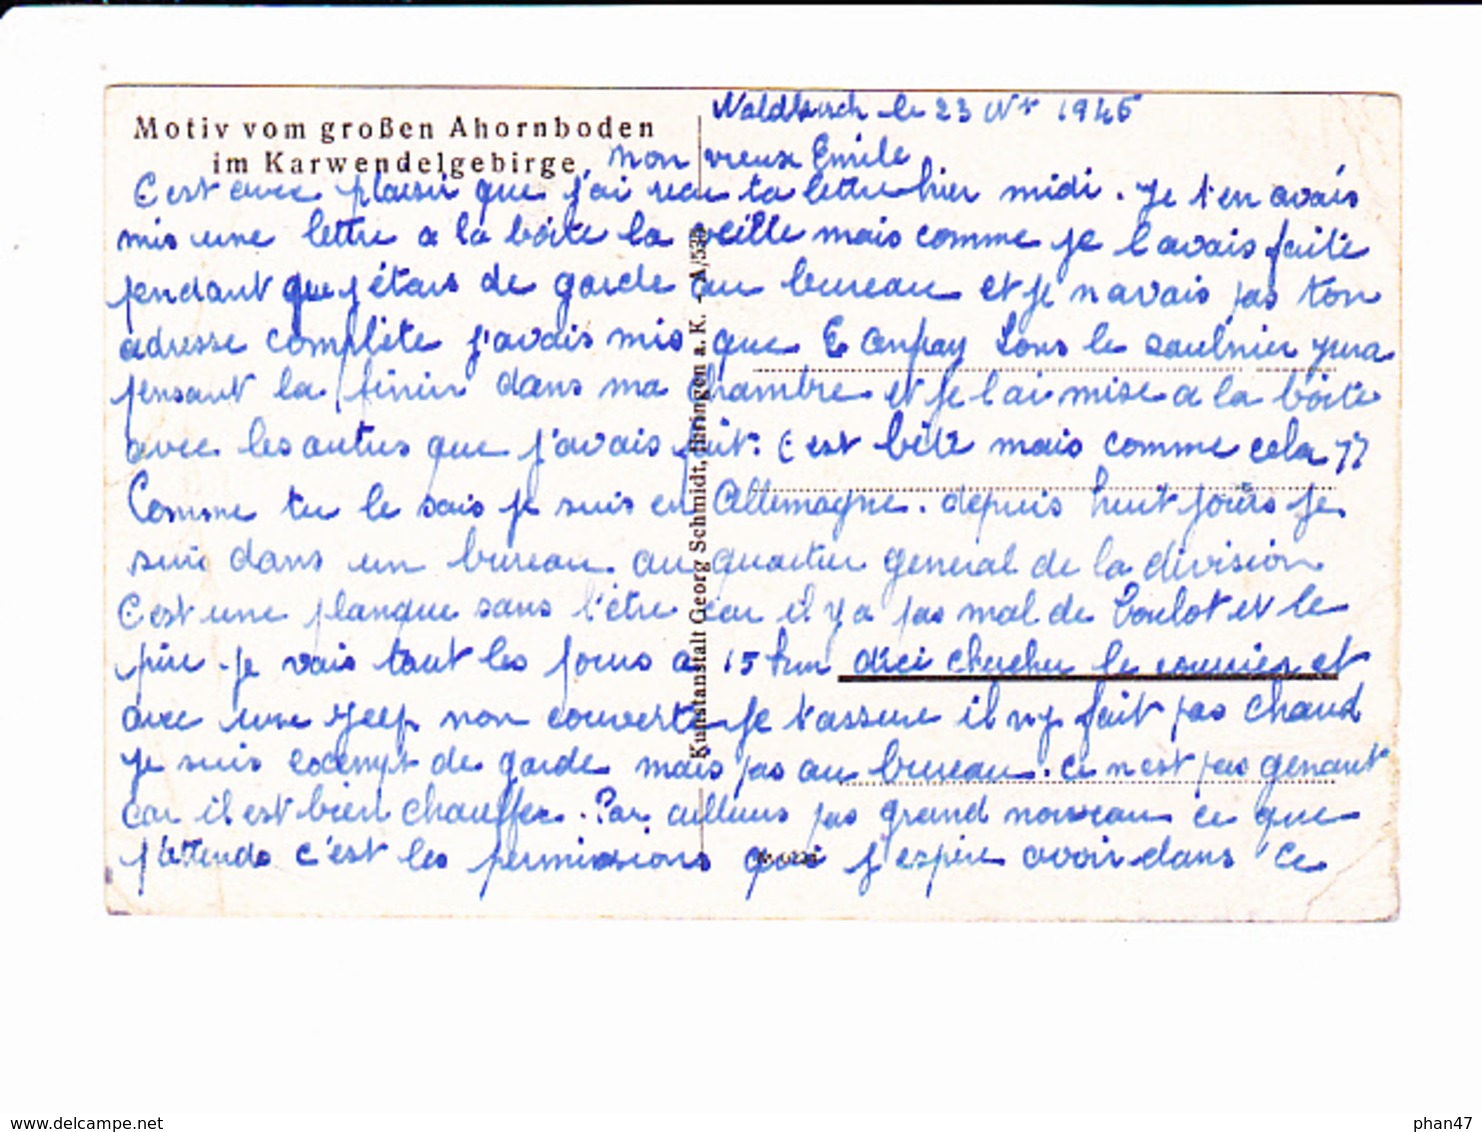 Motiv vom großen Ahornboden
im Karwendelgebirge
Waldkirch le 23 Nr 1945
mon vieux Emile
C'est avec plaisir que j'ai reçu ta lettre hier midi. Je t'en avais
mis une lettre a la boite la veille mais comme je l'avais faite
pendant que j'étais de garde au bureau et je n'avais pas ton
adresse complète j'avais mis que Lons le Saulnier Jura
pensant la finir dans ma chambre et je l'ai mise a la boite
avec les autres que j'avais fait. C'est bête mais comme cela
Comme tu le sais je suis en Allemagne. depuis huit jours je
suis dans un bureau au quartier general de la division
C'est une planque sans l'être car il y a pas mal de boulot et le
pire je vais tout les jours a 15 km d'ici chercher le courrier et
avec une jeep non couverte je t'assure il n'y fait pas chaud
je suis exempt de garde mais pas au bureau. Ce n'est pas genant
car il est bien chauffer. Par ailleurs pas grand nouveau ce que
j'attends c'est les permissions que j'espère avoir dans ce
Kunstanstalt Georg Schmidt, Türingen a. K. - A/535
delcampe.net
phan47